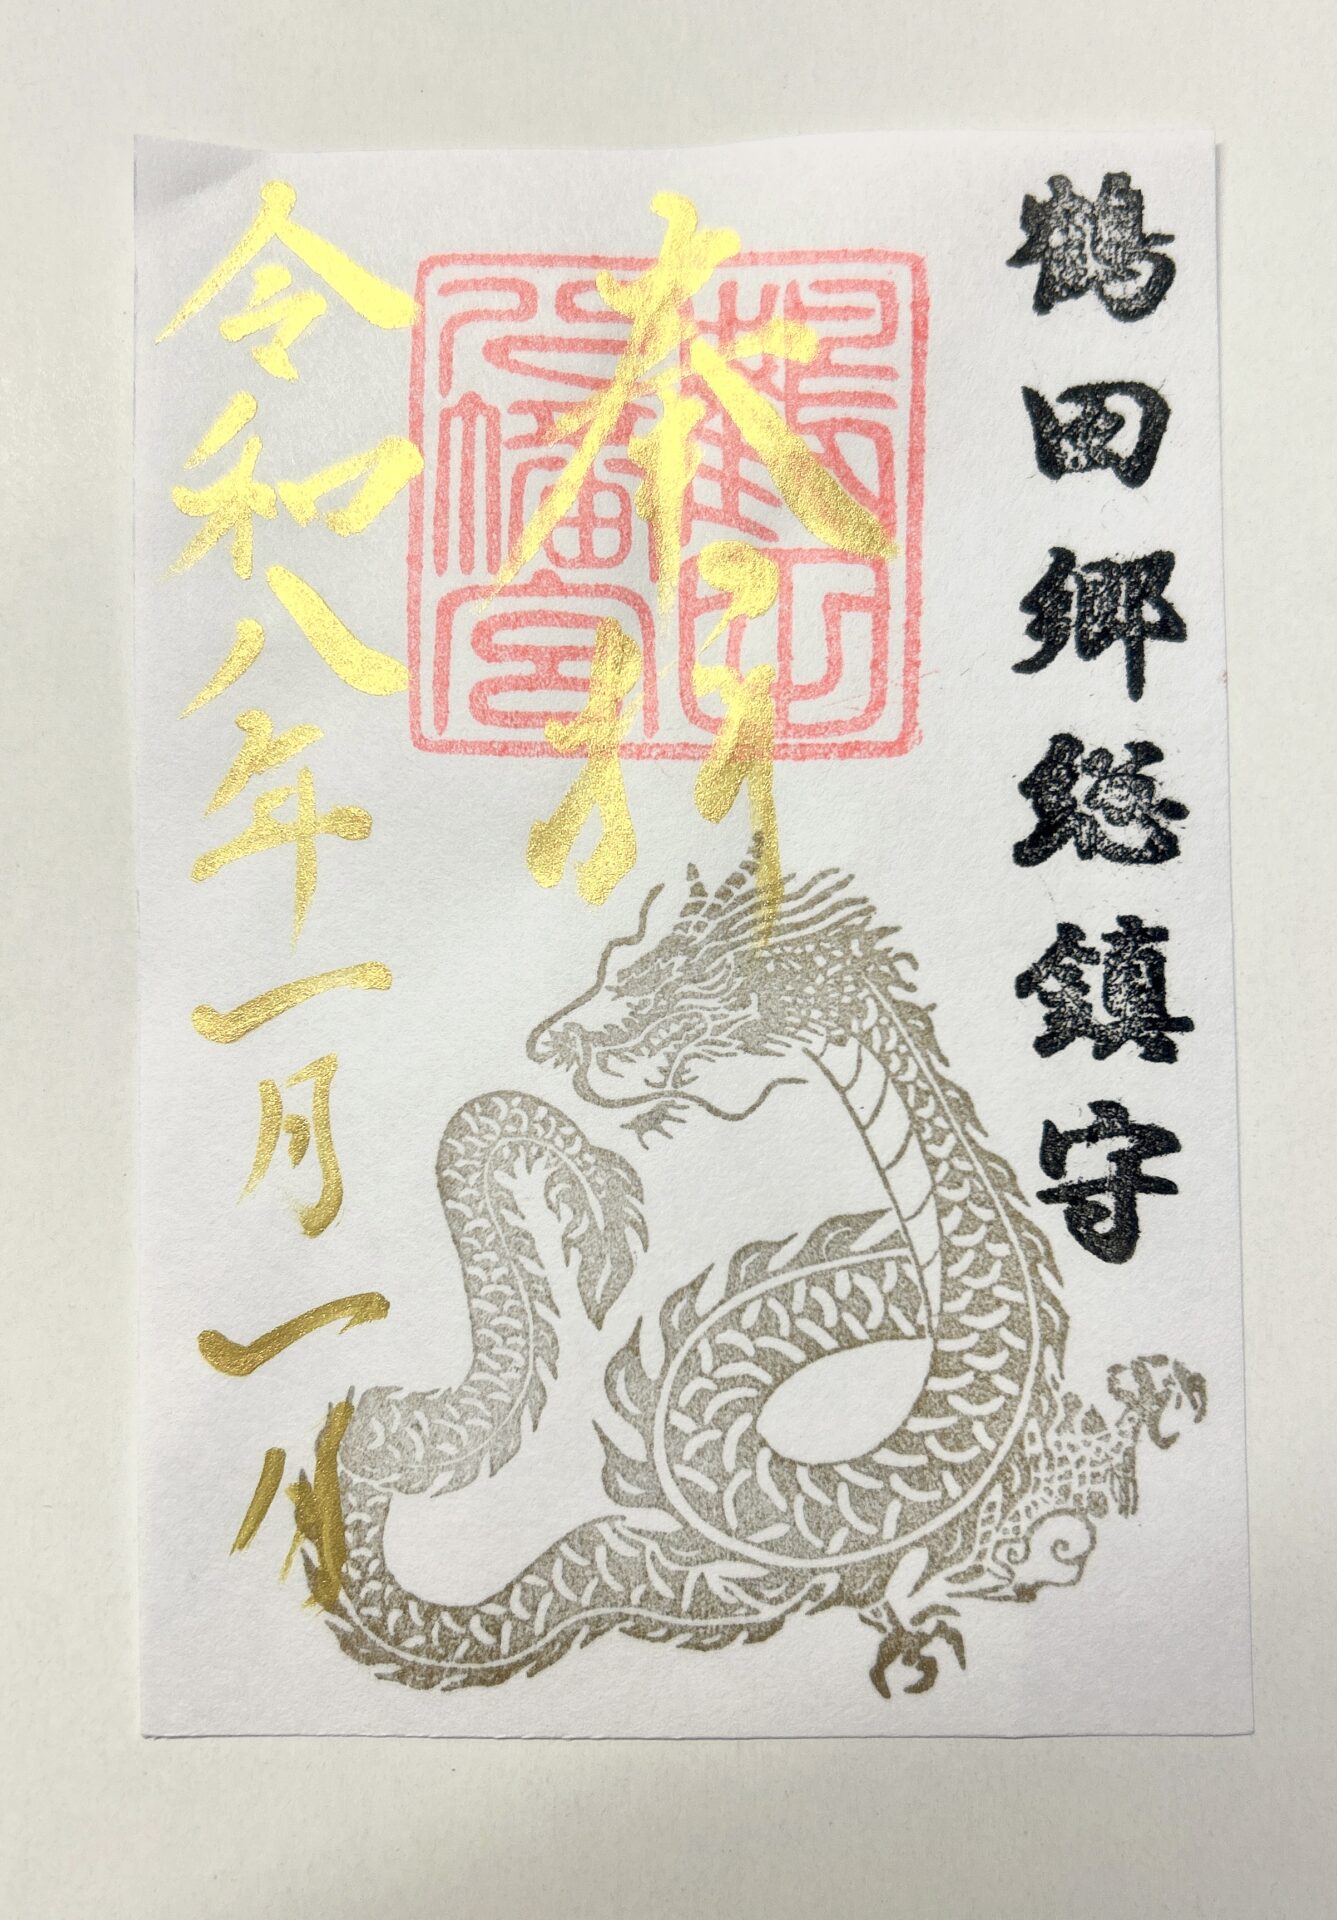 鶴田郷総鎮守
奉拝
鶴
八幡宮
令和八年一月一日